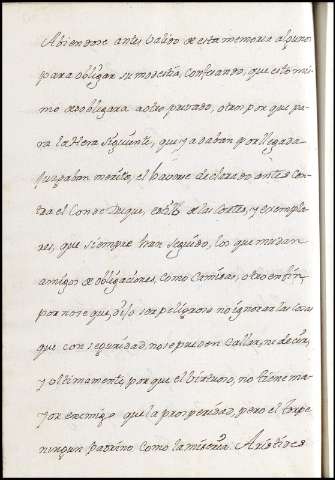 Abiendose antes valido de esta memoria algunos
para obligar su modestia, confesando, que esto mis-
mo desobligara a otro privado, otros por que pa-
ra la Hera siguiente, que ya daban por llegada
juzgaban merito, el haverse declarado antes con-
tra el Conde Duque, estilo de las Cortes, y exempla-
res, que siempre han seguido, los que mudan
amigos de obligaciones, como Camisas, otro en fin,
por no se que, dijo ser peligroso no ignorar las cosas
que con seguridad, no se pueden Callar, ni decir,
y ultimamente, porque el Virtuoso, no tiene ma-
yor enemigo que la prosperidad, pero el torpe
ningun Padrino como la miseria. Aristides